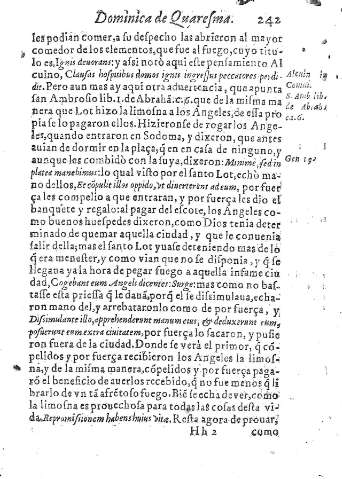 Dominica de Quaresma. 242
les podian comer, a su despecho las abrieron al mayor
comedor de los elementos, que fue al fuego, cuyo titu-
lo es, Ignis deuorans: y assi notò aqui este pensamiento Al
cuino, Clausas hospitibus domos ignis ingressus peccatores perdi-
dit. Pero aun mas ay aqui otra aduertencia, que apunta
san Ambrosio lib. 1. de Abrahā. c. 6. que de la misma ma
nera que Lot hizo la limosna a los Angeles, de essa pro
pia se lo pagaron ellos. Hizieronse de rogar los Ange-
les, quando entraron en Sodoma, y dizeron, que antes
auian de dormir en la plaça, q̃ en en casa de ninguno, y
aunque les combidò con la suya, dizeron: Minimè, sed in
platea manebimus: lo qual visto por el santo Lot, echò ma
no dellos, Et cōpulit illos oppido, vt diuerterent ad eum, por fuer
ça les compelio a que entraran, y por fuerça les dio el
banquete y regalo: al pagar del escote, los Angeles co-
mo buenos huespedes dixeron, como Dios tenia deter
minado de quemar aquella ciudad, y que le conuenia
salir della; mas el santo Lot yuase deteniendo mas de lo
q̃ era menester, y como vian que no se disponia, y q̃ se
llegaua ya la hora de pegar fuego a aquella infame ciu
dad, Cogebant eum Angeli dicentes: Surge: mas como no bas-
tasse esta priessa q̃ le dauā, porq̃ el se dissimulaua, echa-
ron mano del, y arrebataronlo como de por fuerça, y,
Dissimulante illo, apprehenderunt manum eius, & deduxerunt eum,
posuerunt eum extra ciuitatem, por fuerça lo sacaron, y pusie
ron fuera de la ciudad. Donde se verà el primor, q̃ cō-
pelidos y por fuerça recibieron los Angeles la limos-
na, y de la misma manera, cōpelidos y por fuerça paga-
rō el beneficio de auerlos recebido, q̃ no fue menos q̃ li
brarlo de vn tā afrētoso fuego. Biē se echa de ver, como
la limosna es prouechosa para todas las cosas desta vi-
da. Repromissionem habens huius vitæ. Resta agora de prouar,
Hh 2 como
Alcuin in
Comit.
S. Amb. lib.
de Abrahā
ca. 6.
Gen 19.